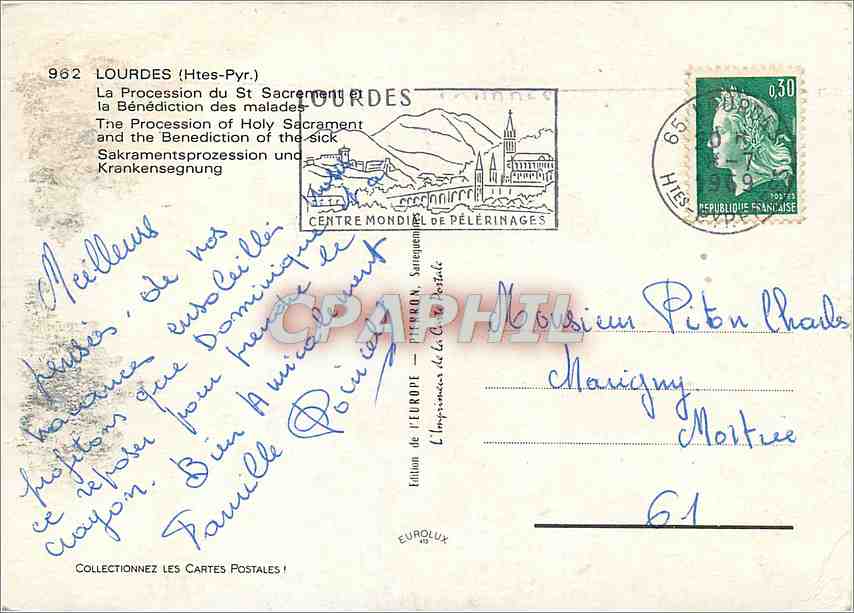 962 LOURDES (Htes-Pyr.)
La Procession du St Sacrement et
la Bénédiction des malades
The Procession of Holy Sacrament
and the Benediction of the sick
Sakramentsprozession und
Krankensegnung
LOURDES
CENTRE MONDIAL DE PÈLERINAGES
65 LOURDES
HTES-PYRENEES
0,30
POSTES
REPUBLIQUE FRANÇAISE
Meilleurs
pensées, de nos
vacances ensoleillés nous
profitons que Dominique
se reposer pour prendre le
crayon. Bien Amicalement
Famille Poincet
Edition de l'EUROPE — PIERRON, Sarreguemines
L'Imprimeur de la Carte Postale
CPAPHIL
Monsieur Piton Charles
Marigny
Mortrée
61
EUROLUX
COLLECTIONNEZ LES CARTES POSTALES !